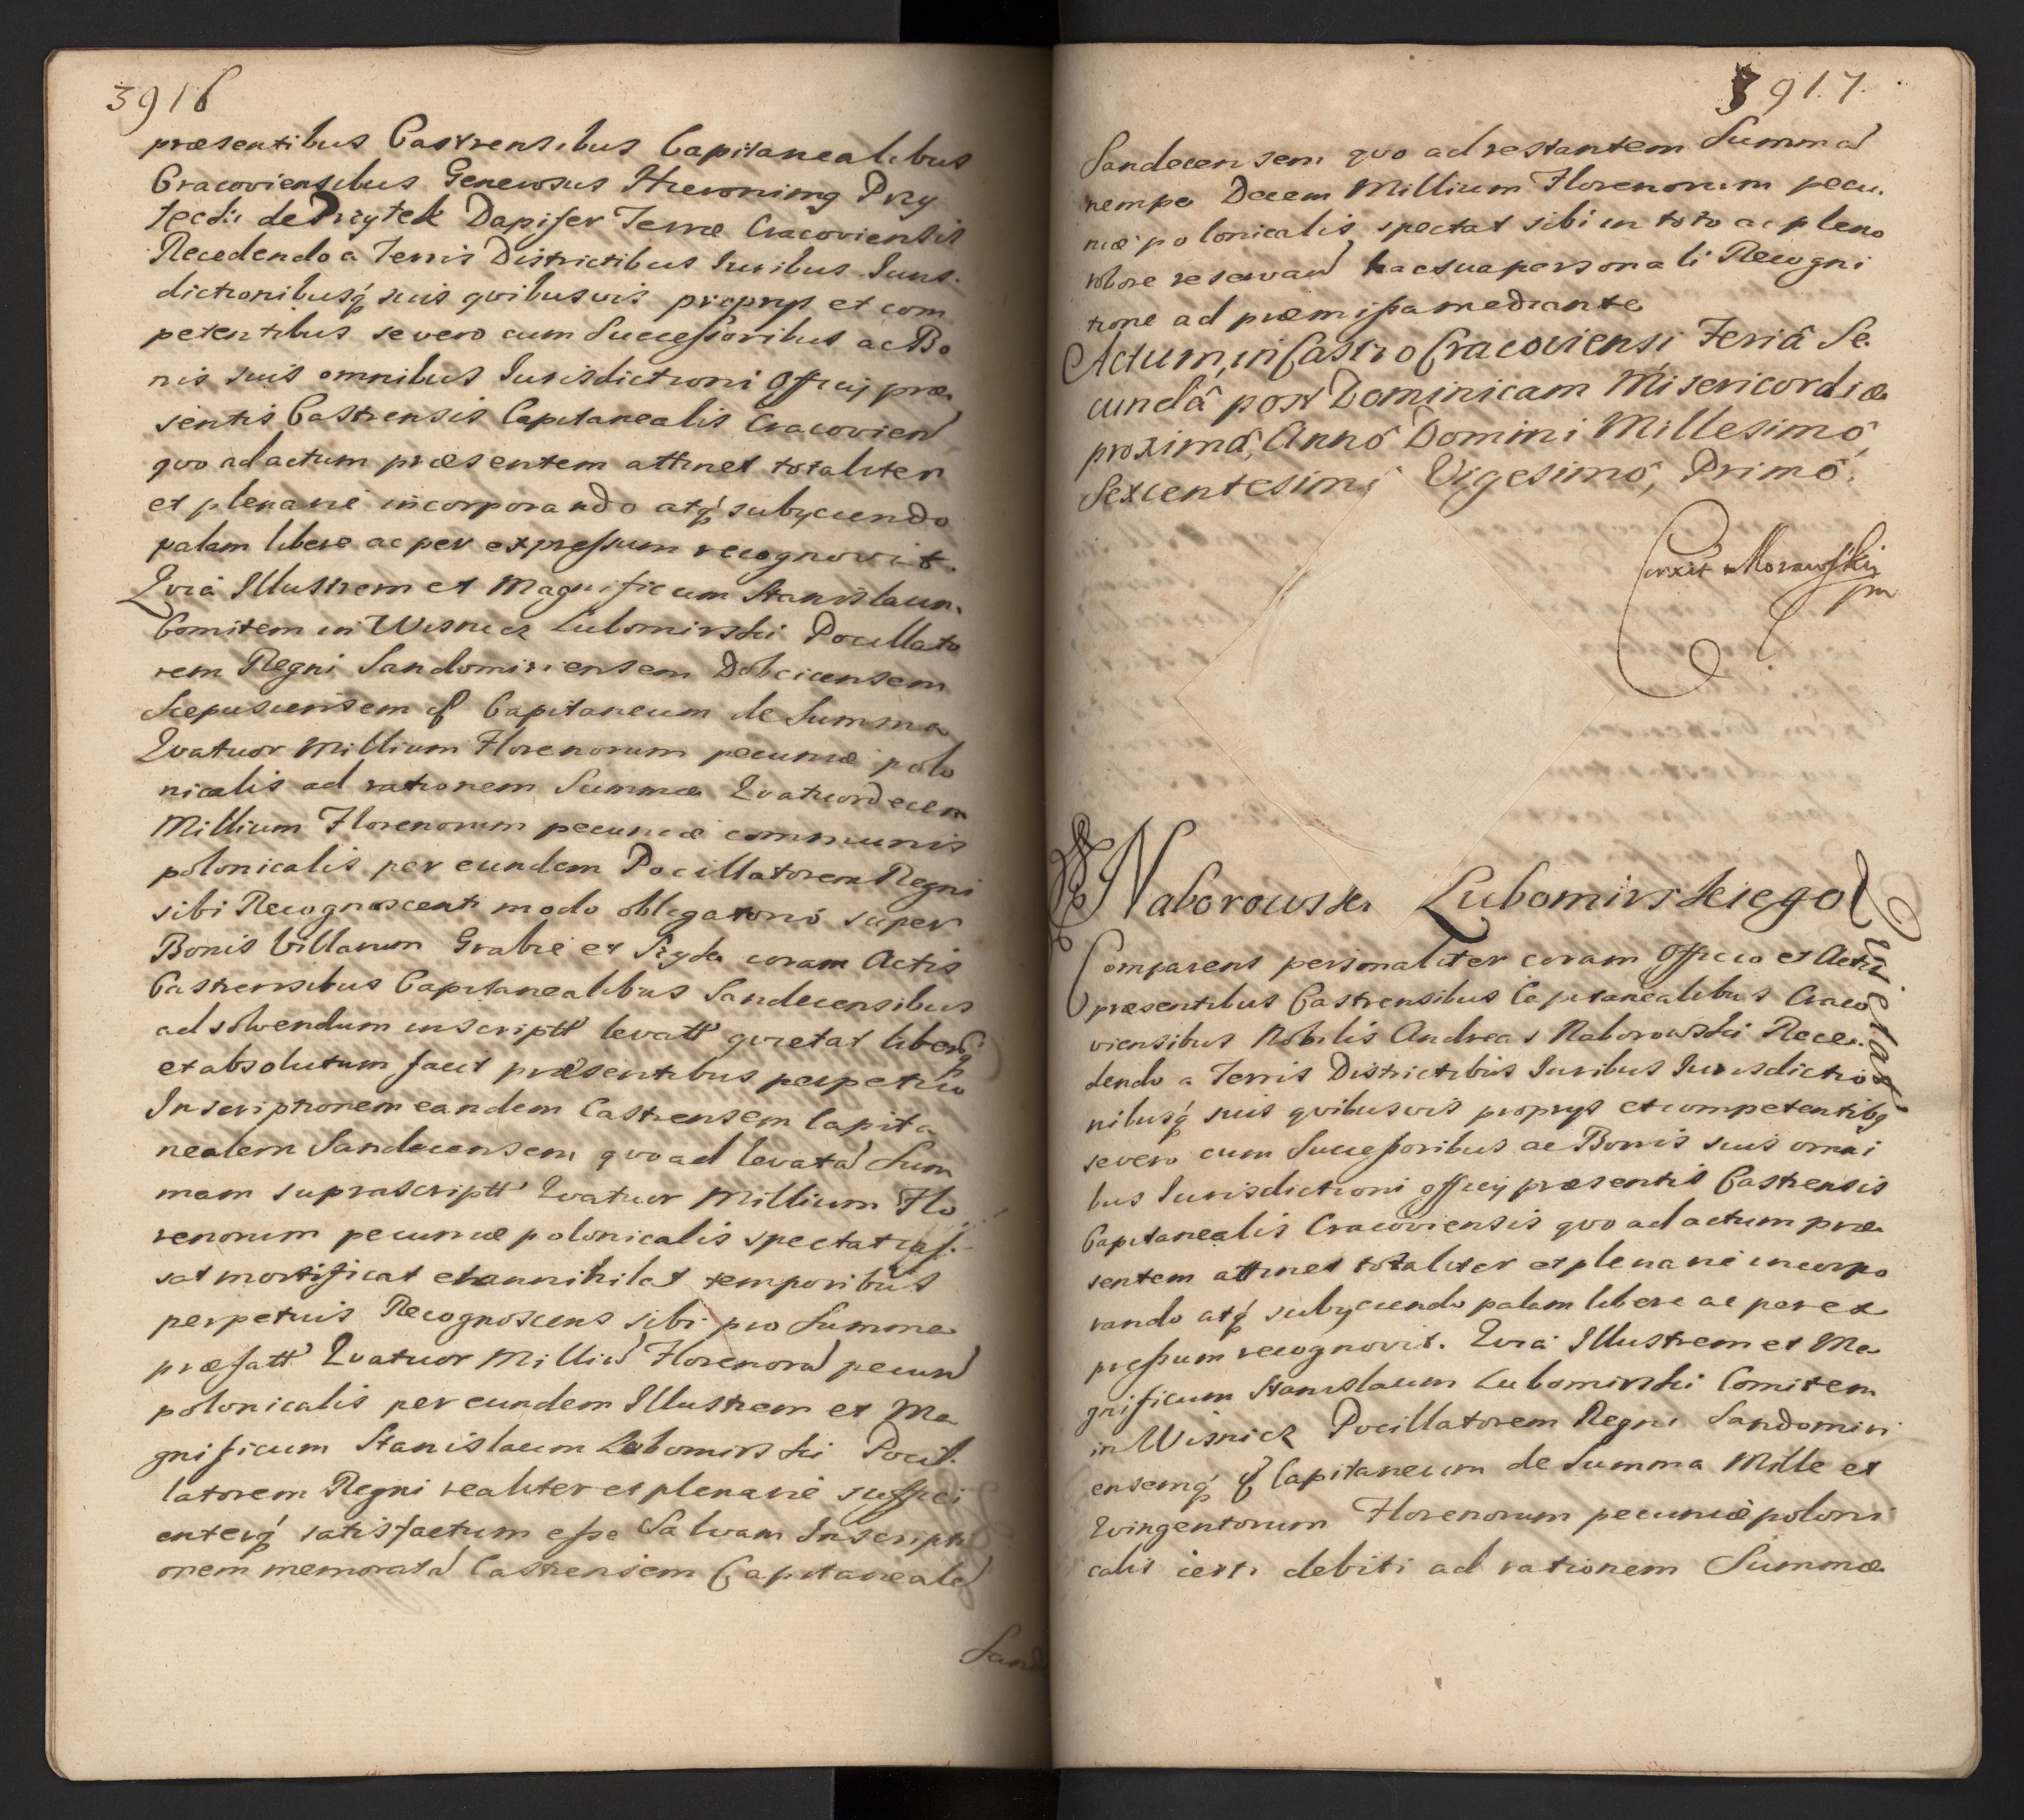 3916
præsentibus Castrensibus Capitanealibus
Cracoviensibus Generosus Hieronimq Przy
tecki de Przytek Dapifer Terræ Cracoviensis
Recedendo a Terris Districtibus Iuribus Iuris-
dictionibusq́ suis qvibusvis proprys et com
petentibus se vero cum Successoribus ac Bo
nis suis omnibus Iurisdictioni Officij præ
sentis Castrensis Capitanealis Cracovien
qvo ad actum præsentem attinet totaliter
et plenarie incorporando atq́ subyciendo
palam libere ac per expressum recognovit.
Qvia Illustrem et Magnificum Stanislaum
Comitem in Wisnicz Lubomirski Pocillato
rem Regni Sandomiriensem Dobcicensem
Scepusiensem q Capitaneum de Summa
Qvatuor Millium Florenorum pecuniæ polo
nicalis ad rationem Summæ Qvatuordecem
Millium Florenorum pecuniæ communis
polonicalis per eundem Pocillatorem Regni
sibi Recognoscenti modo obligatorio super
Bonis Villarum Grabie et coram Actis
Castrensibus Capitanealibus Sandecensibus
ad solvendum inscriptt levatt qvietat liberq
et absolutum facit præsentibus perpetuo
Inscriptionem eandem Castrensem Capita
nealem Sandecensem qvo ad levatā Sum
mam suprascriptt Qvatuor Millium Flo
renorum pecuniæ polonicalis spectat cas-
sat mortificat et annihilat temporibus
perpetuis Recognoscens sibi pro Summa
præfatt Qvatuor Milliū Florenorū pecun
polonicalis per eundem Illustrem et Ma
gnificum Stanislaum Lubomirski Pocil-
latorem Regni realiter et plenarie suffici
enterq́ satisfactum esse Salvam Inscripti
onem memoratā Castrensem Capitanealē
Sand
3917.
Sandecensem qvo ad restantem Summā
nempe Decem Millium Florenorum pecu-
niæ polonicalis spectat sibi in toto ac pleno
robore reservan hac sua personali Recogni
tione ad præmissa mediante
Actum in Castro Cracoviensi Feriâ Se-
cundâ post Dominicam Misericordiæ
proximâ, Annô Domini Millesimô
Sexcentesimô Vigesimô, Primô.
Corxit Morawski
mp
Naborowski Lubomirskiego
Qvietat
Comparens personaliter coram Officio et Actis
præsentibus Castrensibus Capitanealibus Craco
viensibus Nobilis Andreas Naborowski Rece-
dendo a Terris Districtibus Iuribus Iurisdictio
nibusq́ suis qvibusvis proprys et competentibq
se vero cum Successoribus ac Bonis suis omni
bus Iurisdictioni officij præsentis Castrensis
Capitanealis Cracoviensis qvo ad actum præ
sentem attinet totaliter et plenarie incorpo
rando atq́ subyciendo palam libere ac per ex
pressum recognovit. Qvia Illustrem et Ma
gnificum Stanislaum Lubomirski Comitem
in Wisnicz Pocillatorem Regni Sandomiri
ensemq́ q Capitaneum de Summa Mille et
Qvingentorum Florenorum pecuniæ poloni
calis certi debiti ad rationem Summæ